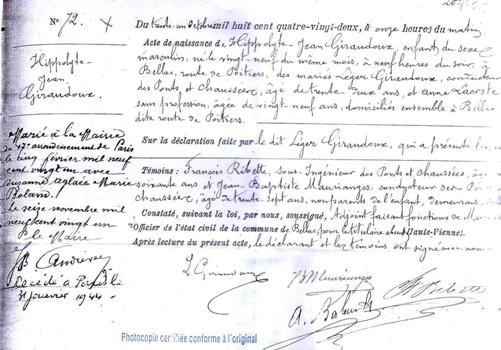 N° 72.
Hippolyte-
Jean
Giraudoux.
Marié à la Mairie
du 17e arrondissement de Paris
le cinq février mil neuf
cent vingt un avec
Suzanne Aglaée Marie
Boland.
le seize novembre mil
neuf cent vingt un
Le Maire
Décédé à Paris le
31 janvier 1944
Du trente-un Octobre mil huit cent quatre-vingt-deux, à onze heures du matin
Acte de naissance de Hippolyte-Jean Giraudoux, enfant du sexe
masculin, né le vingt-neuf du même mois, à neuf heures du soir, à
Bellac, route de Poitiers, des mariés Léger Giraudoux, conducteur
des Ponts et Chaussées, âgé de trente-deux ans, et Anne Lacoste
sans profession, âgée de vingt-neuf ans, domiciliés ensemble à Bellac
dite route de Poitiers.
Sur la déclaration faite par le dit Léger Giraudoux, qui a présenté
Témoins : François Ribette, sous-Ingénieur des Ponts et chaussées, âgé
soixante ans et Jean Baptiste Maurianges, conducteur des Ponts
chaussées, âgé de trente-sept ans, non parents de l'enfant, demeurant
Constaté, suivant la loi, par nous, soussigné, Adjoint faisant fonctions de Maire
Officier de l'état civil de la commune de Bellac, pour le titulaire absent (Haute-Vienne).
Après lecture du présent acte, le déclarant et les témoins ont signé avec nous
L Giraudoux
Photocopie certifiée conforme à l'original